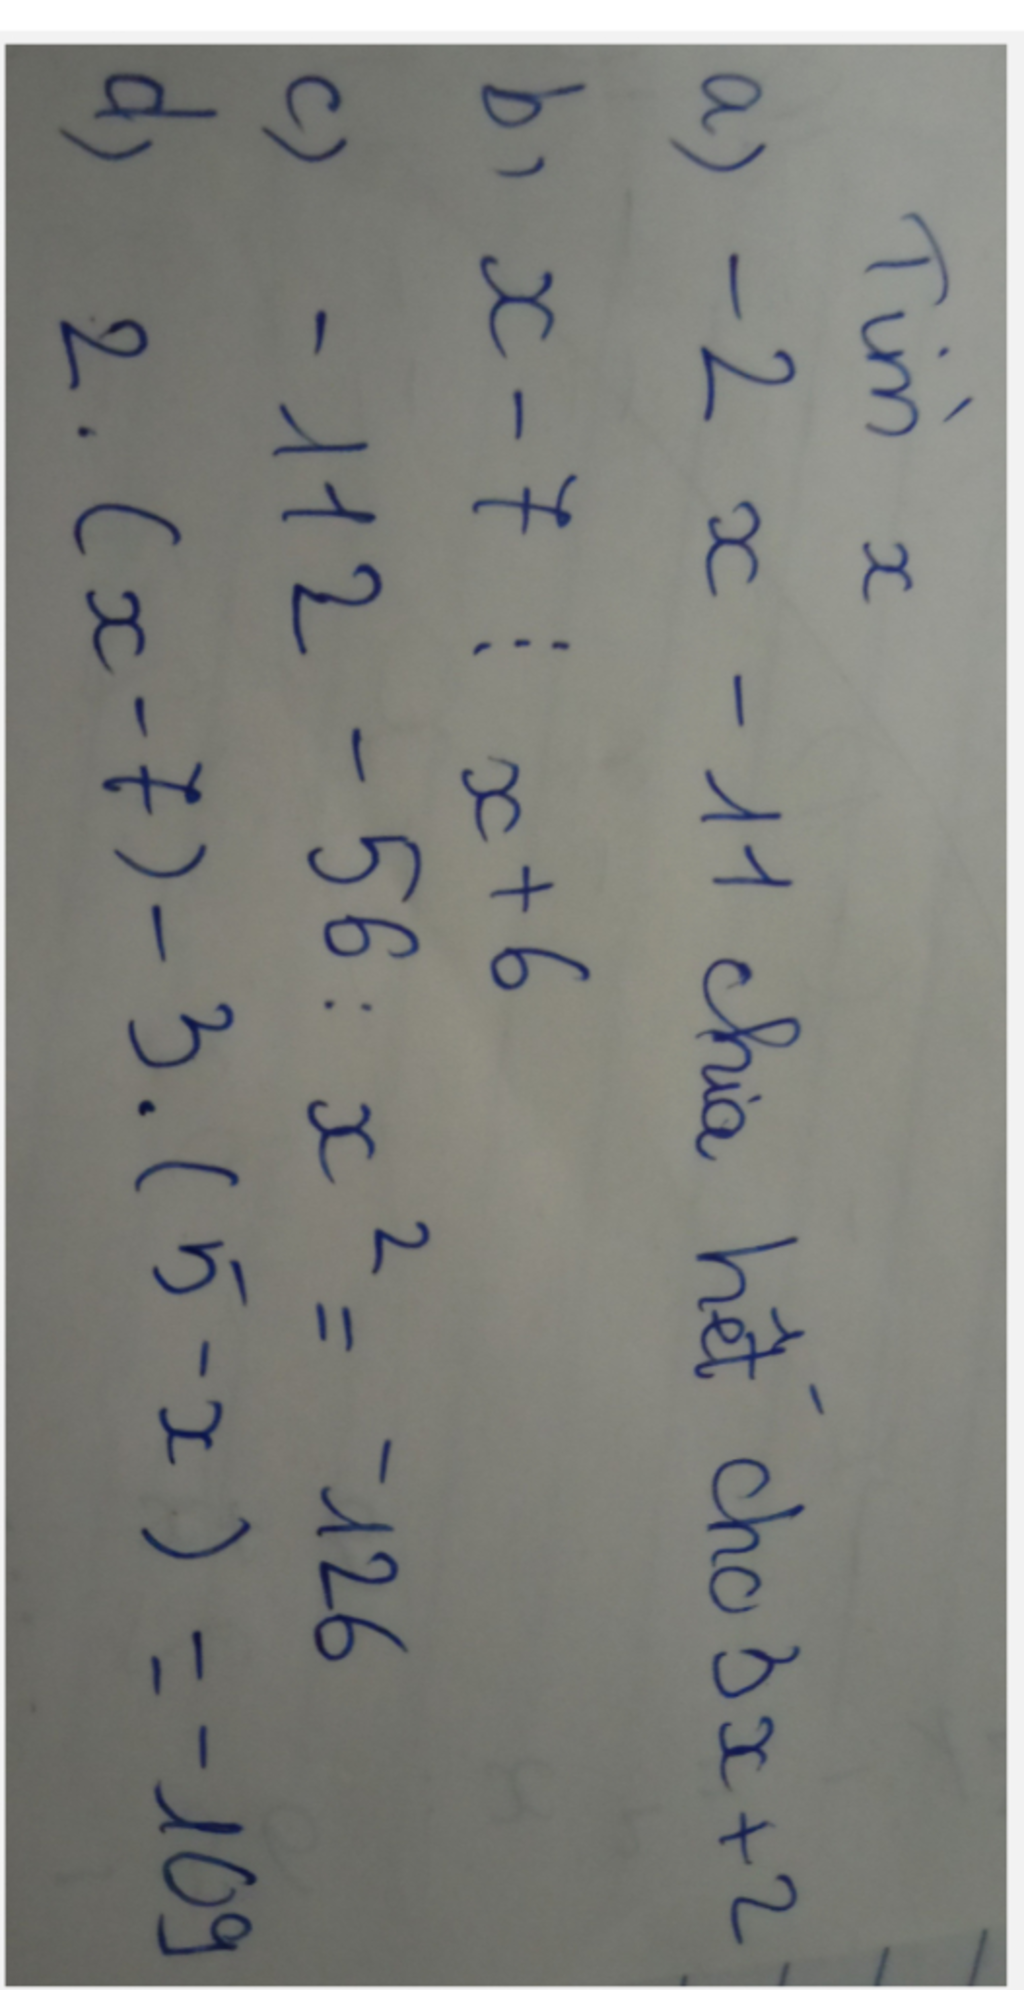 Tìm x
a) -2x - 11 chia hết cho 3x+2
b, x - 7 ⋮ x+6
c) -112 - 56 : x² = -126
d) 2.(x-7) - 3.(5-x) = -109